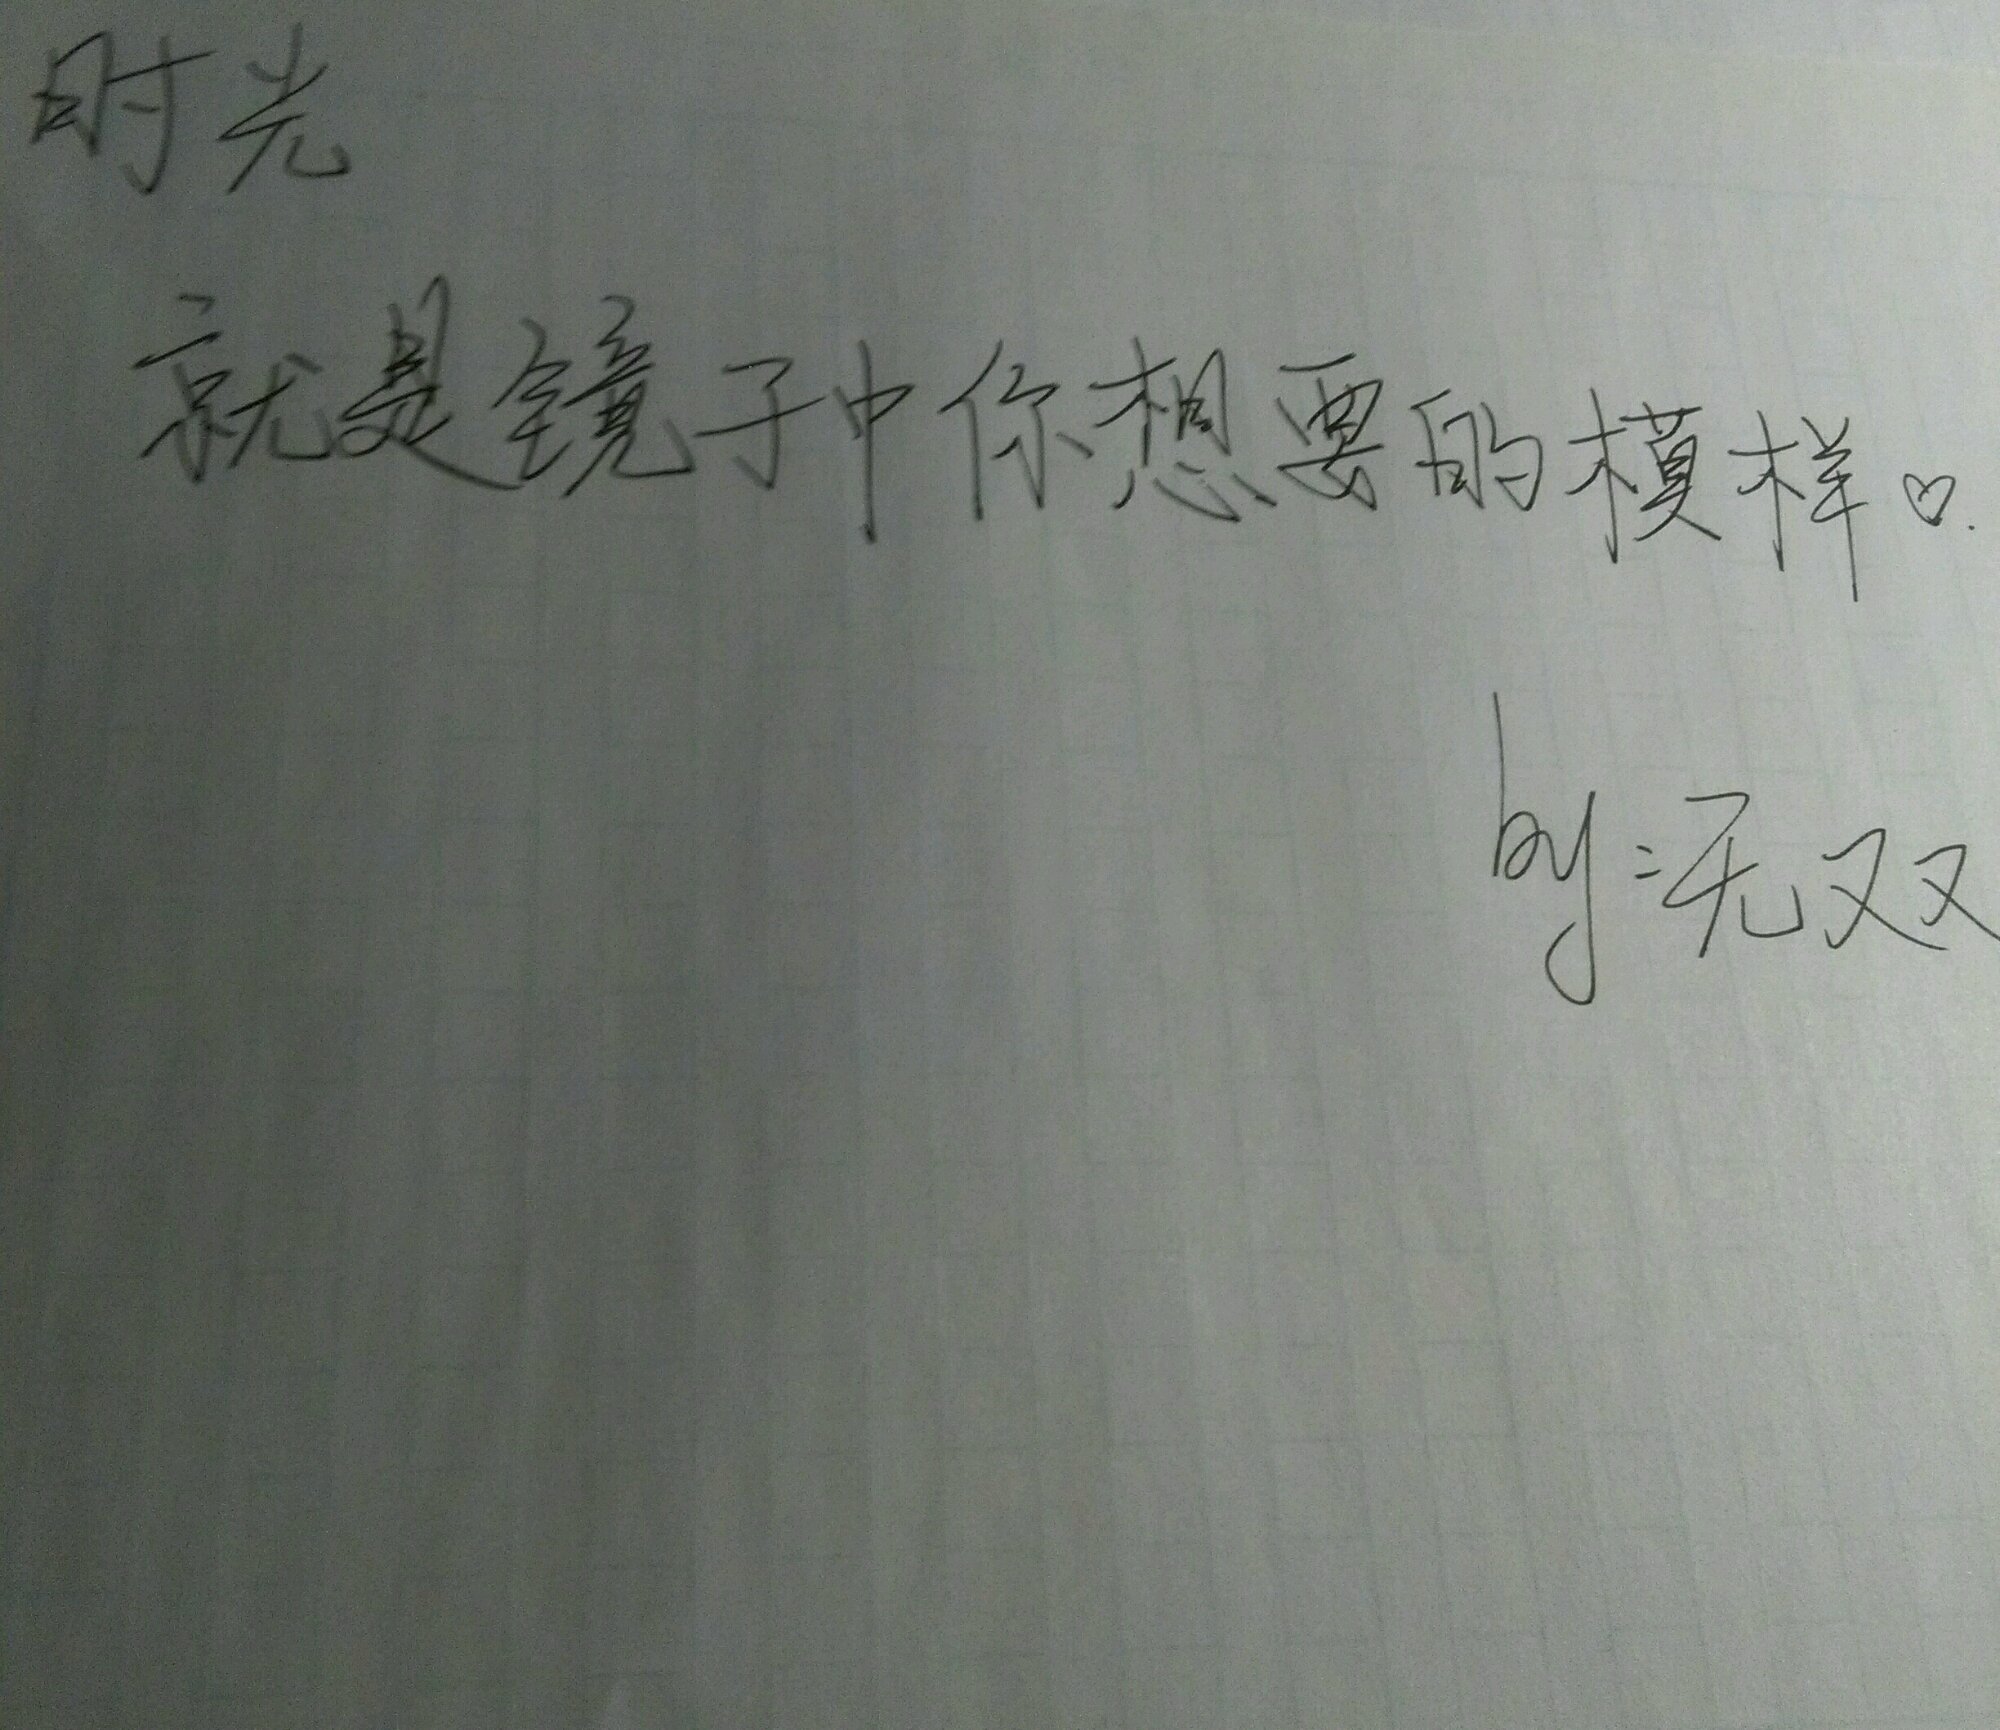 时光
就是镜子中你想要的模样。♡.
by:无双